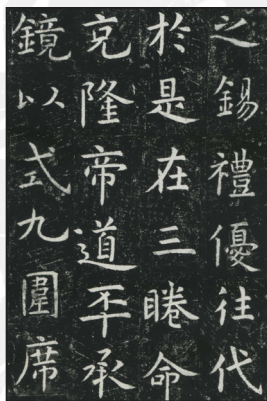 之錫禮優往代
於是在三睠命
克隆帝道丕承
鏡以式九圍席